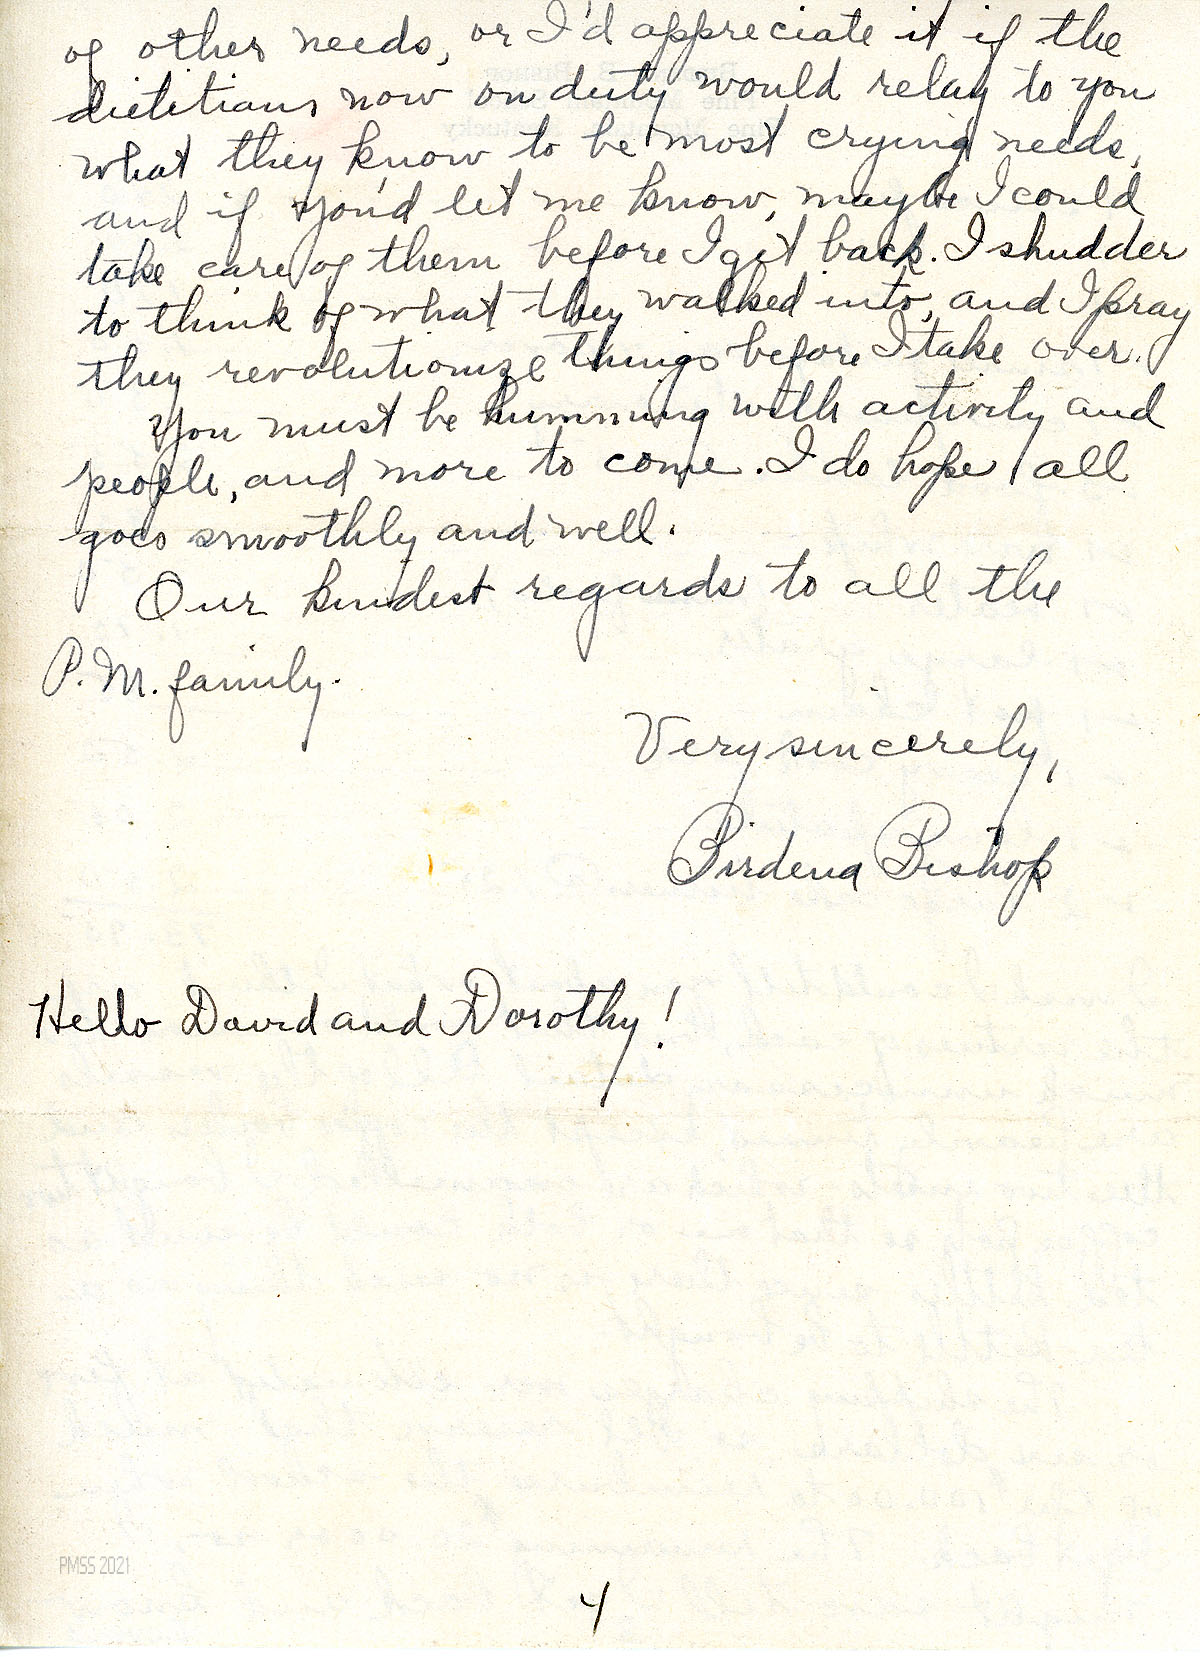 of other needs, or I'd appreciate it if the
dietitians now on duty would relay to you
what they know to be most crying needs,
and if you'd let me know, maybe I could
take care of them before I get back. I shudder
to think of what they walked into, and I pray
they revolutionize things before I take over.
You must be humming with activity and
people, and more to come. I do hope all
goes smoothly and well.
Our kindest regards to all the
P.M. family.
Very sincerely,
Birdena Bishop
Hello David and Dorothy!
PMSS 2021
4